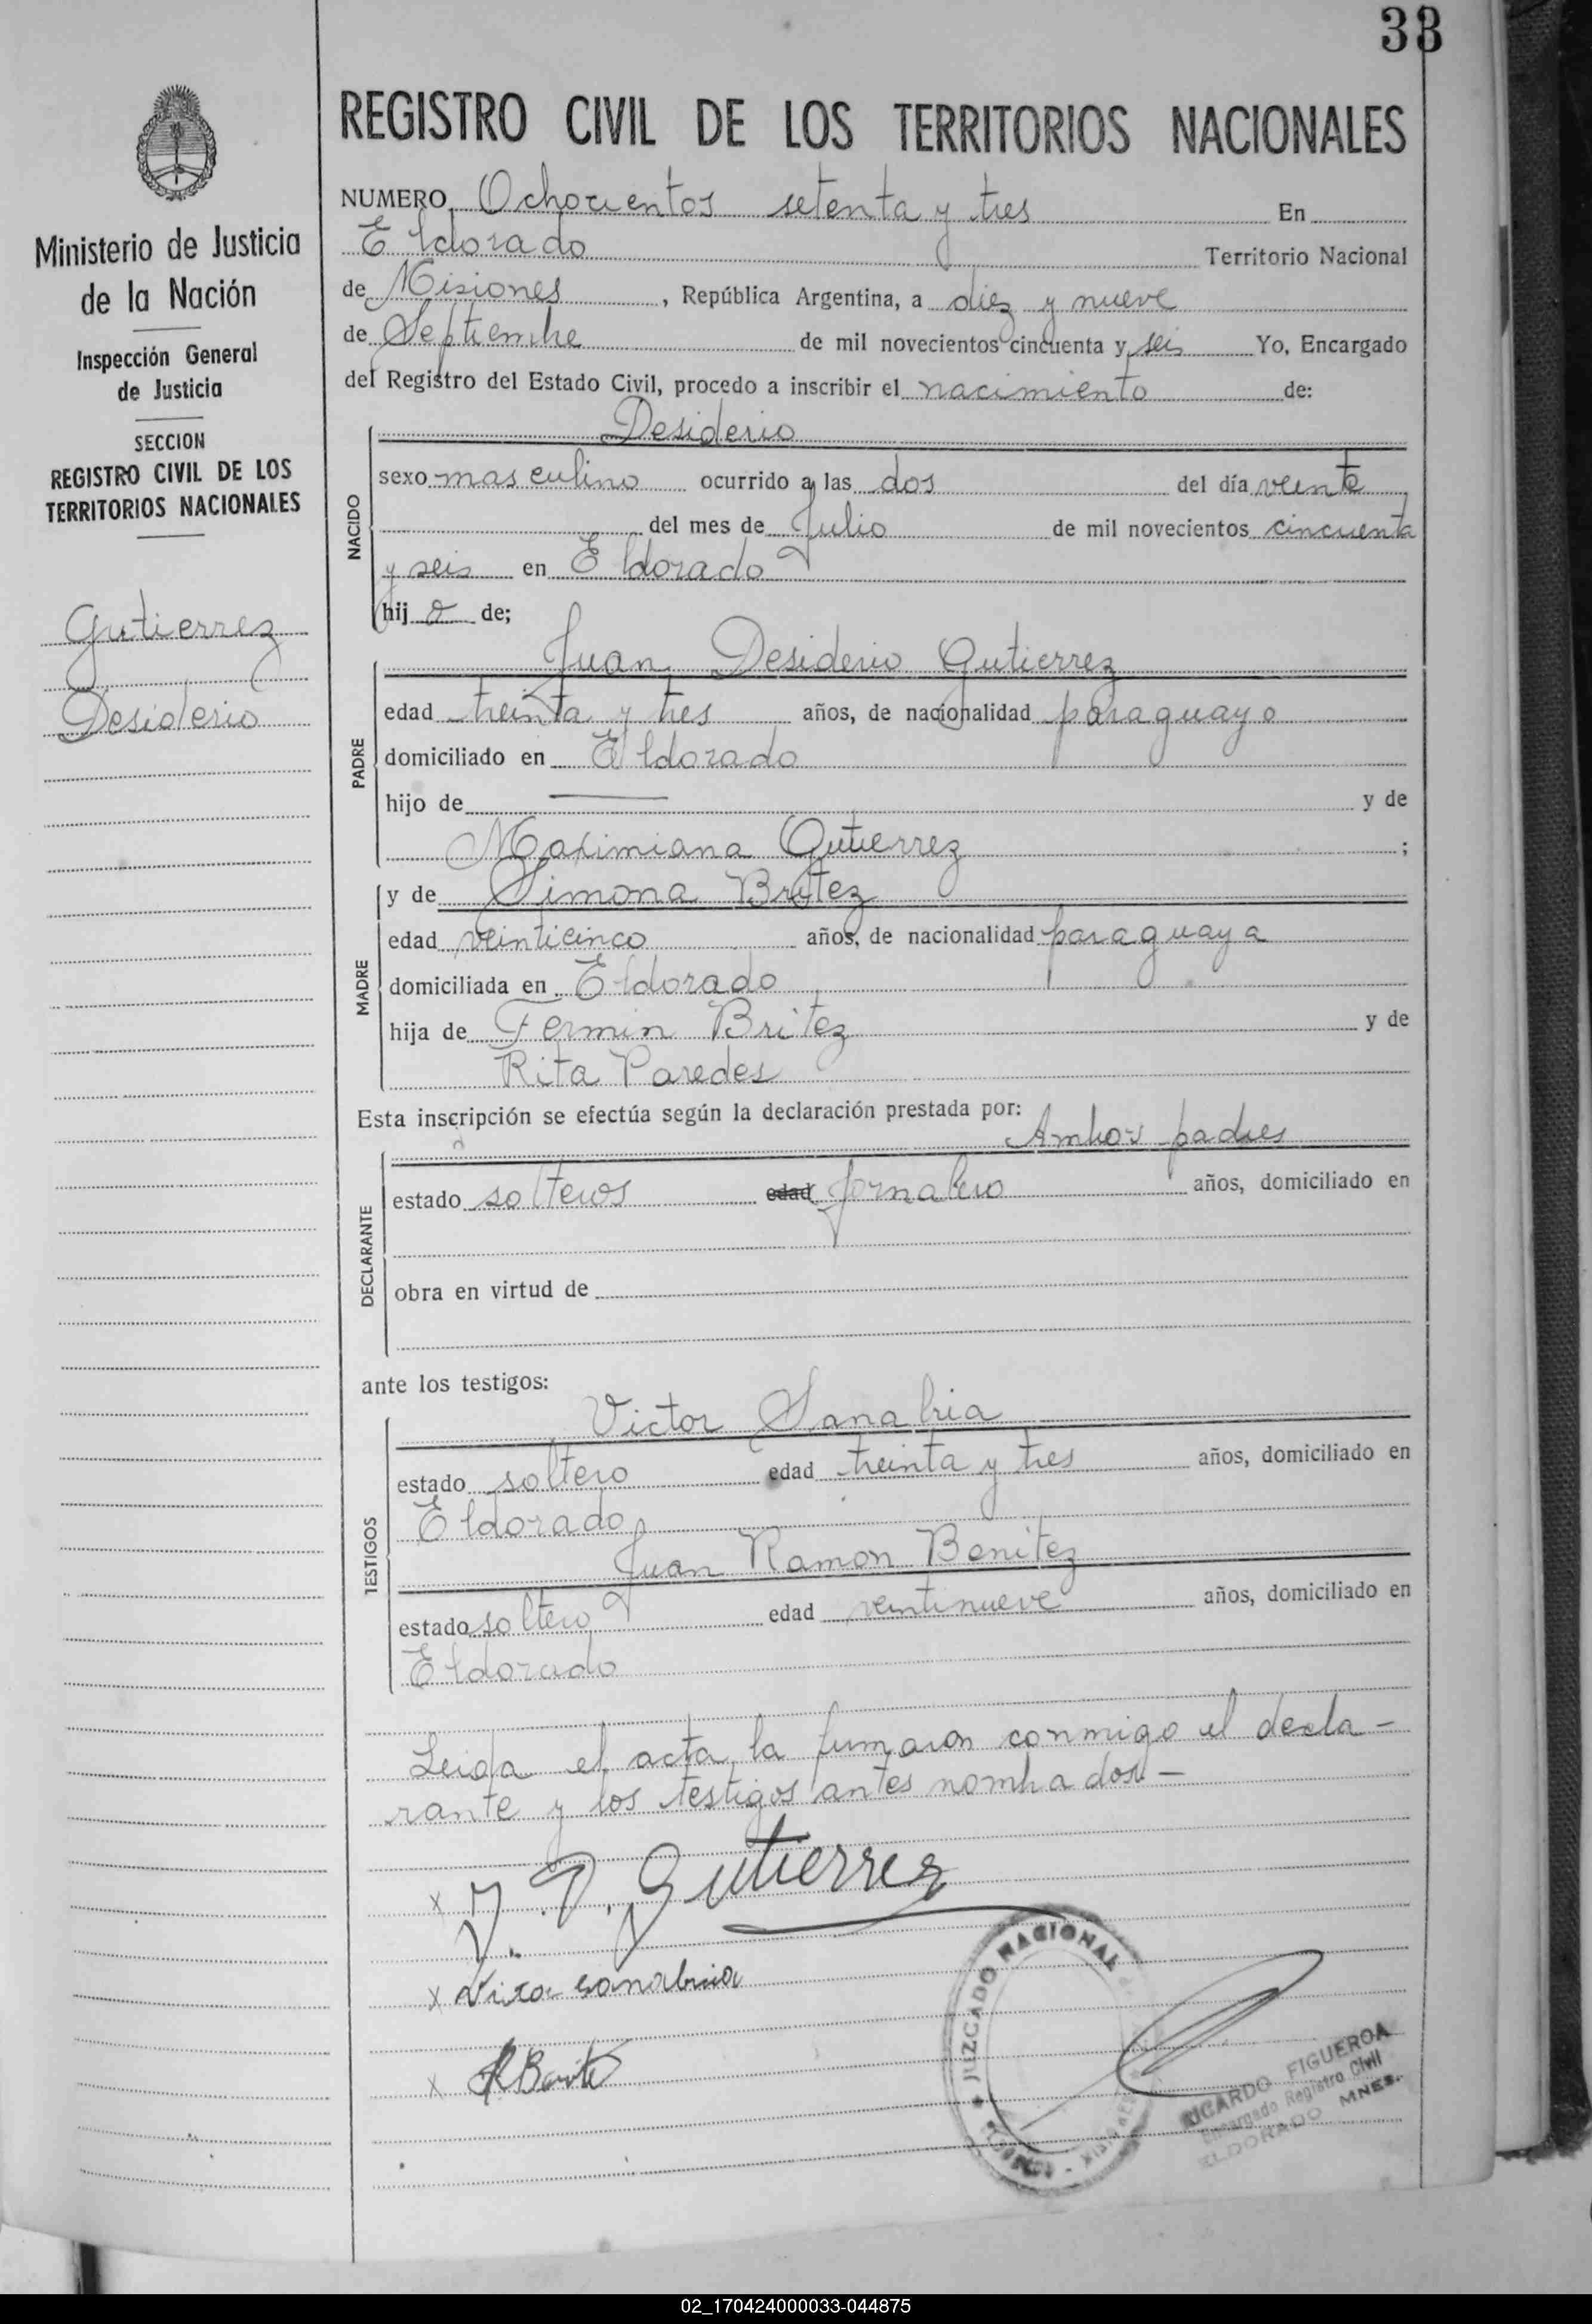 38
REGISTRO CIVIL DE LOS TERRITORIOS NACIONALES
NUMERO Ochocientos setenta y tres En
Eldorado Territorio Nacional
de Misiones, República Argentina, a diez y nueve
de Septiembre de mil novecientos cincuenta y seis Yo, Encargado
del Registro del Estado Civil, procedo a inscribir el nacimiento de:
Ministerio de Justicia
de la Nación
Inspección General
de Justicia
SECCION
REGISTRO CIVIL DE LOS
TERRITORIOS NACIONALES
Gutierrez
Desiderio
NACIDO
Desiderio
sexo masculino ocurrido a las dos del día veinte
del mes de Julio de mil novecientos cincuenta
y seis en Eldorado
hijo de;
PADRE
Juan Desiderio Gutierrez
edad treinta y tres años, de nacionalidad paraguayo
domiciliado en Eldorado
hijo de — y de
Maximiana Gutierrez;
MADRE
y de Simona Britez
edad veinticinco años, de nacionalidad paraguaya
domiciliada en Eldorado
hija de Fermin Britez y de
Rita Paredes
Esta inscripción se efectúa según la declaración prestada por:
DECLARANTE
Ambos padres
estado solteros edad Jornalero años, domiciliado en
obra en virtud de
ante los testigos:
TESTIGOS
Victor Sanabria
estado soltero edad treinta y tres años, domiciliado en
Eldorado
Juan Ramon Benitez
estado soltero edad veintinueve años, domiciliado en
Eldorado
Leida el acta, la firmaron conmigo el decla-
rante y los testigos antes nombrados-
x J. D. Gutierrez
x Victor Sanabria
x
JUZGADO NACIONAL
RICARDO FIGUEROA
Encargado Registro Civil
ELDORADO MNES.
02_170424000033-044875